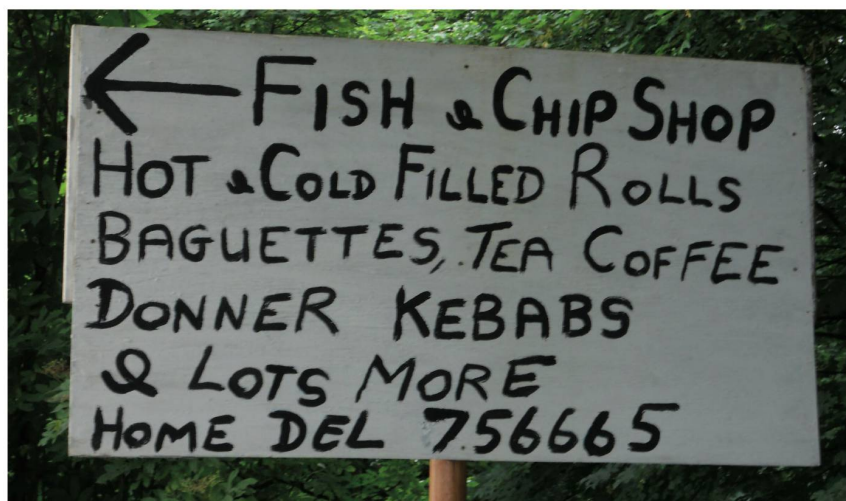 ← FISH & CHIP SHOP
HOT & COLD FILLED ROLLS
BAGUETTES, TEA COFFEE
DONNER KEBABS
& LOTS MORE
HOME DEL 756665